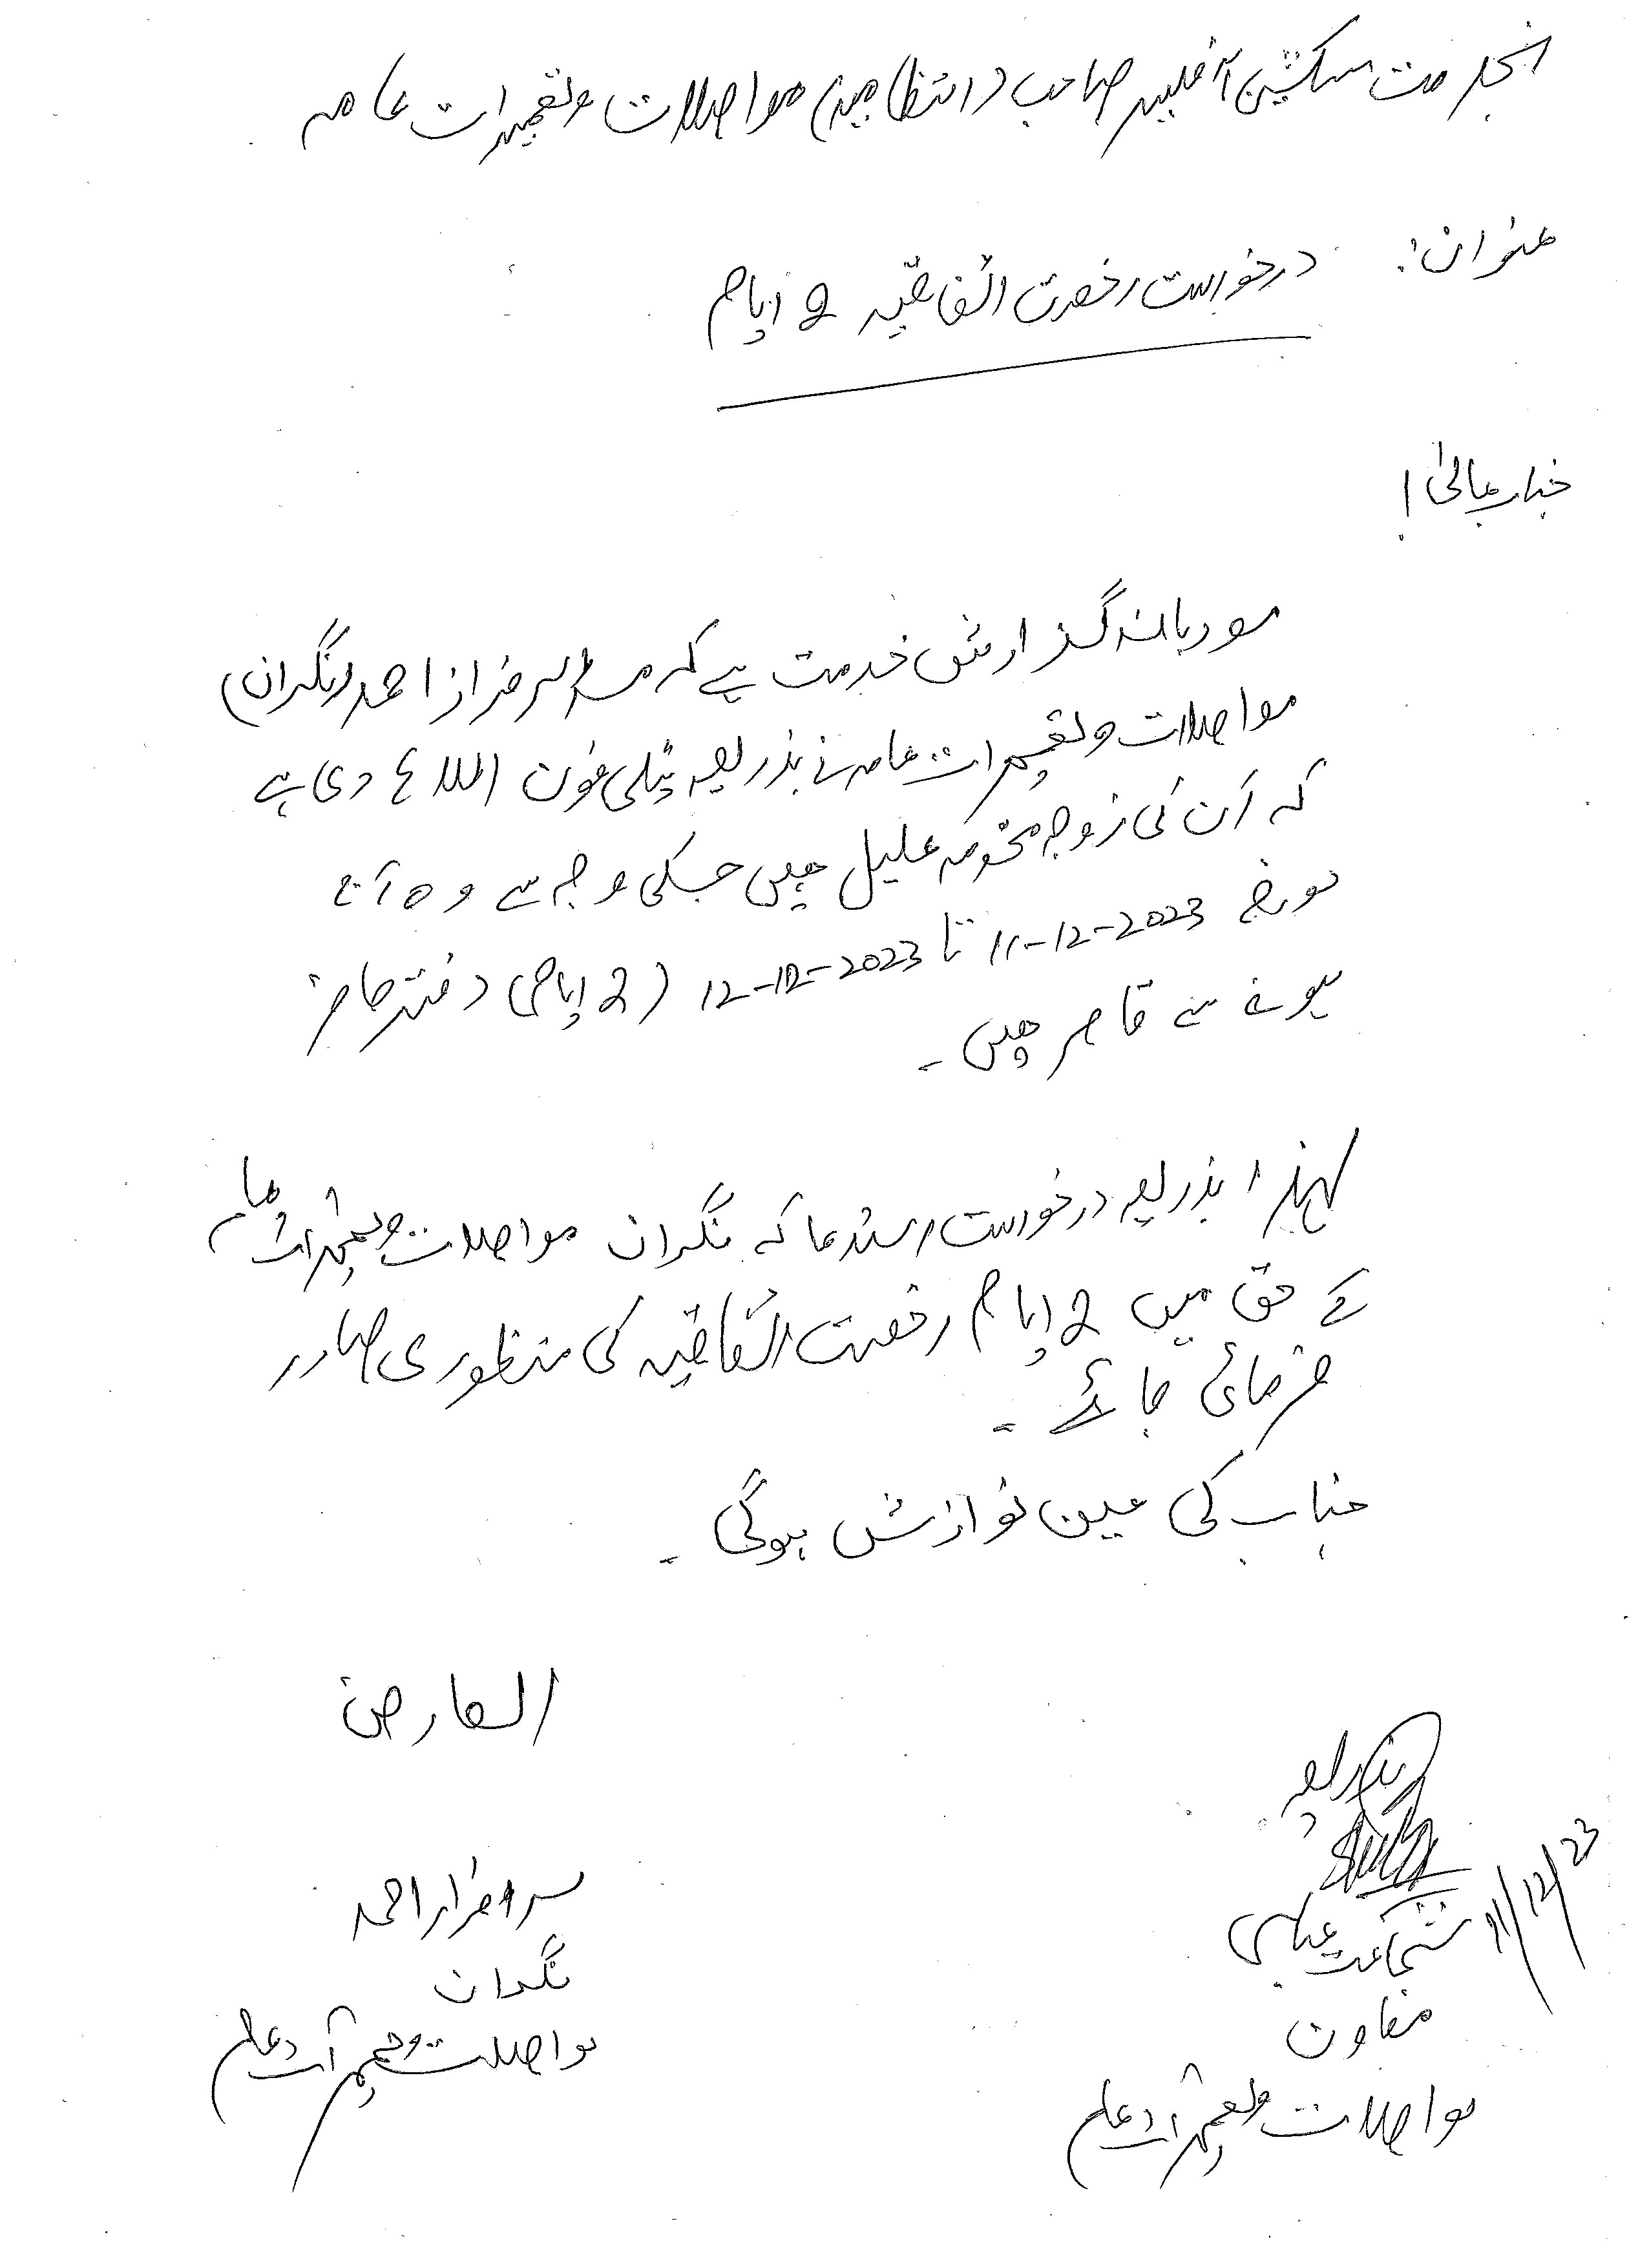 بخدمت سیکشن آفیسر صاحب (انتظامیہ) مواصلات و تعمیرات عامہ
عنوان: درخواست رخصت اتفاقیہ 2 ایام
جناب عالیٰ!
مودبانہ گزارش خدمت ہے کہ مسٹر سرفراز احمد (نگران)
مواصلات و تعمیرات عامہ نے بذریعہ ٹیلی فون اطلاع دی ہے
کہ اُن کی زوجہ محترمہ علیل ہیں جسکی وجہ سے وہ آج
مورخہ 11-12-2023 تا 12-12-2023 (2 ایام) دفتر حاضر
ہونے سے قاصر ہیں۔
لہٰذا بذریعہ درخواست استدعا کہ نگران مواصلات و تعمیرات عامہ
کے حق میں 2 ایام رخصت اتفاقیہ کی منظوری صادر
فرمائی جائے۔
جناب کی عین نوازش ہوگی۔
العارض
سرفراز احمد
نگران
مواصلات و تعمیرات عامہ
بذریعہ
11/12/23
شجاعت عباسی
معاون
مواصلات و تعمیرات عامہ